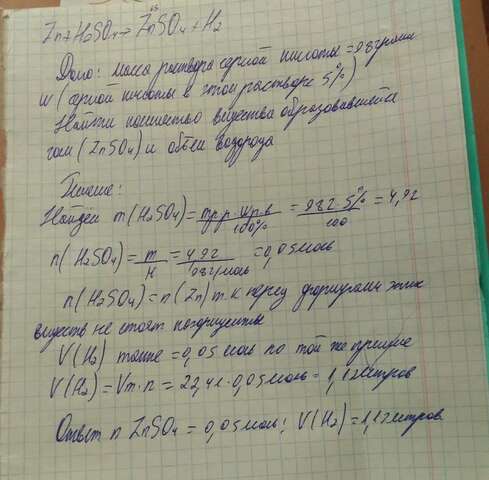 Zn+H2SO4→ZnSO4+H2
Дано: масса раствора серной кислоты=98грамм
W (серной кислоты в этом растворе 5%)
Найти количество вещества образовавшейся
соли (ZnSO4) и объем водорода
Решение:
Найдем m(H2SO4)=mр.р·Wр.в/100%=98г·5%/100=4,9г
n(H2SO4)=m/M=4,9г/98г/моль=0,05моль
n(H2SO4)=n(Zn) т.к перед формулами этих
веществ не стоят коэффициенты
V(H2) тоже=0,05моль по той же причине
V(H2)=Vm·n=22,4л·0,05моль=1,12литров
Ответ n ZnSO4=0,05моль; V(H2)=1,12литров